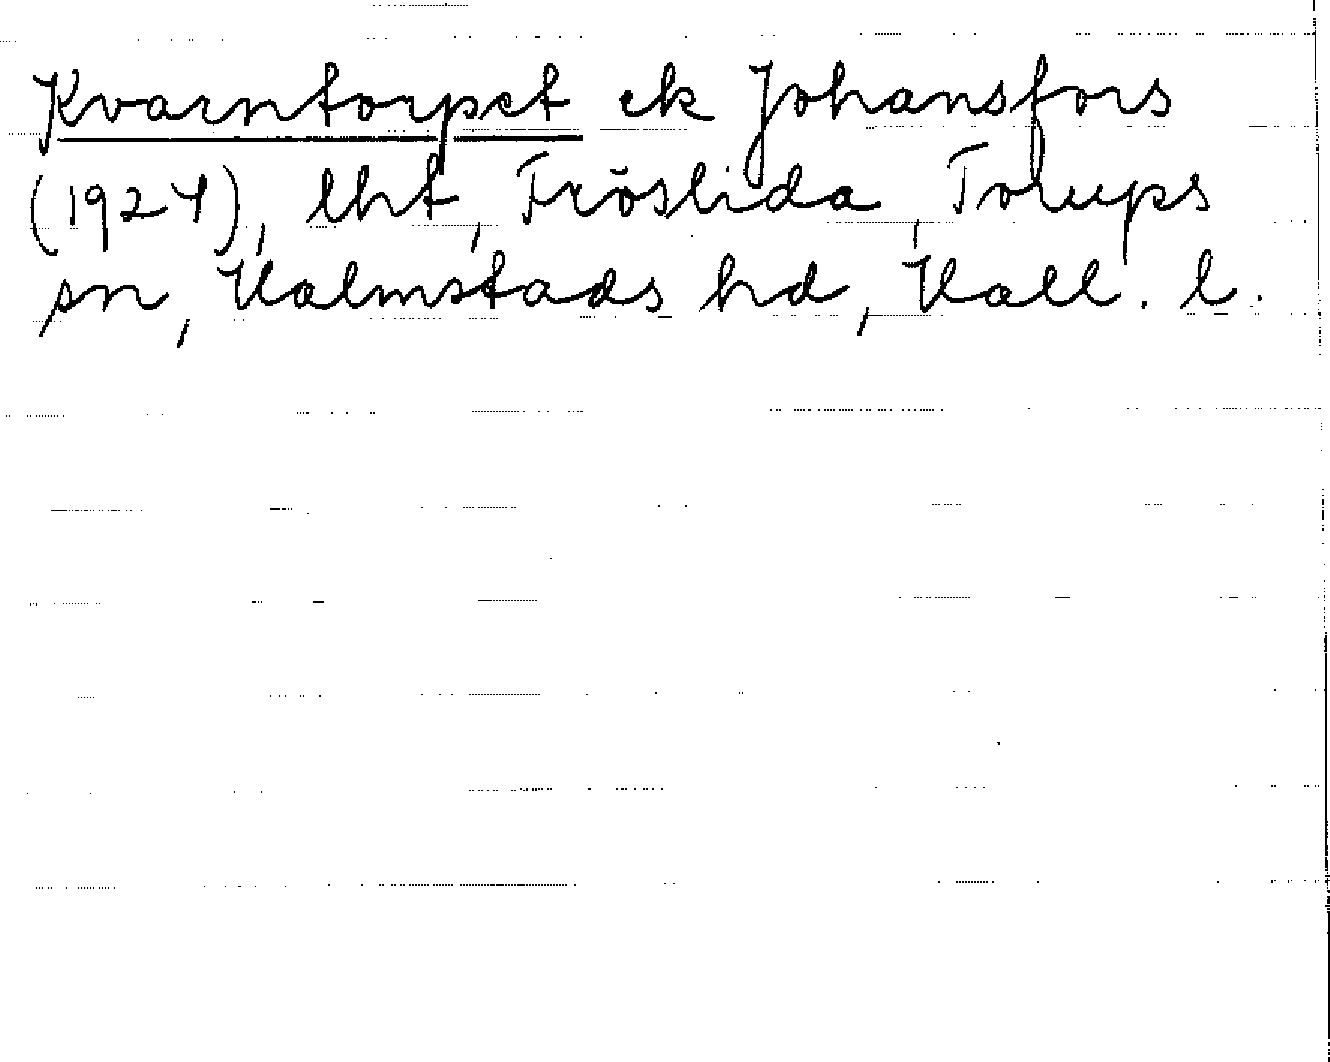 Kvarntorpet ek Johansfors
(1927), lht, Fröslida, Torups
sn, Halmstads hd, Hall. l.